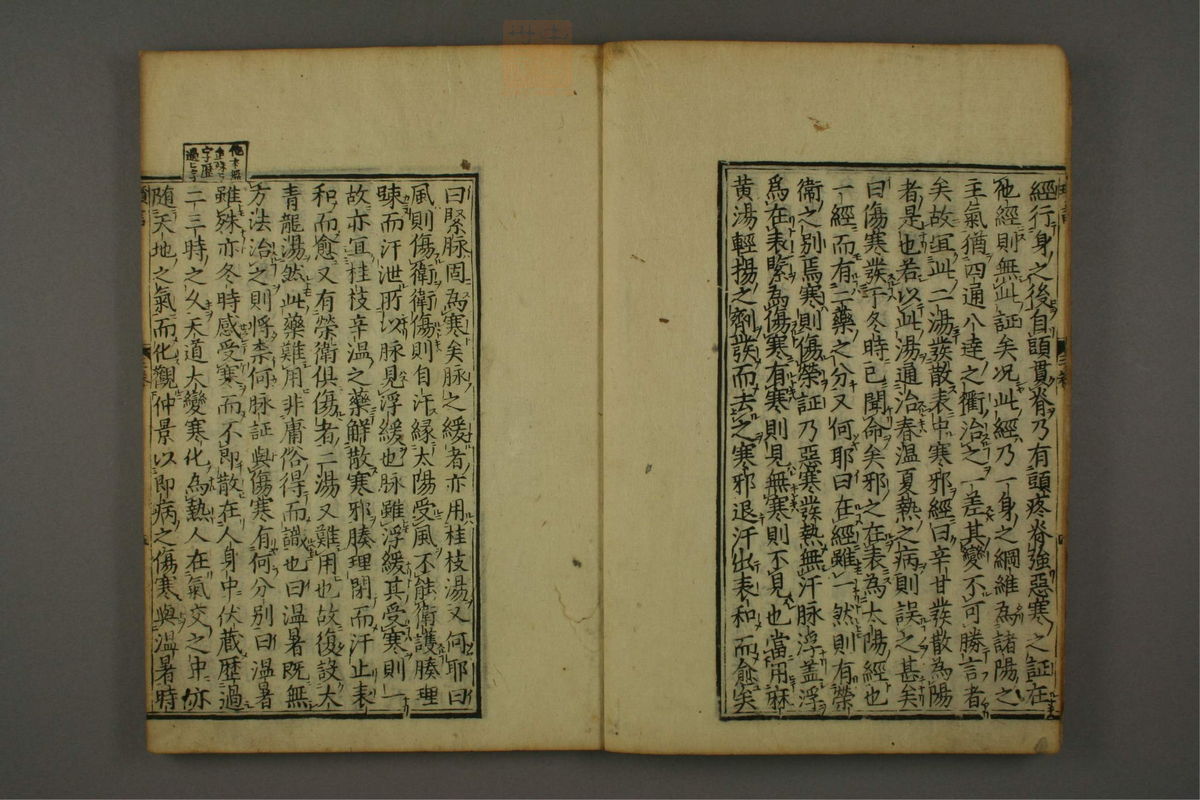 經行身之後自頭貫脊乃有頭疼脊強惡寒之証在
他經則無此証矣况此經乃一身之綱維為諸陽之
主氣猶四通八達之衢治之一差其變不可勝言者
矣故宜此二湯發散表中寒邪經曰辛甘發散為陽
者是也若以此湯通治春温夏熱之病則誤之甚矣
曰傷寒發于冬時已聞命矣邪之在表為太陽經也
一經而有二藥之分又何耶曰在經雖一然則有榮
衛之別焉寒則傷榮証乃惡寒發熱無汗脉浮盖浮
為在表緊為傷寒有寒則見無寒則不見也當用麻
黄湯輕揚之劑發而去之寒邪退汗出表和而愈矣
曰緊脉固為寒矣脉之緩者亦用桂枝湯又何耶曰
風則傷衛衛傷則自汗縁太陽受風不能衛護腠理
踈而汗泄所以脉見浮緩也脉雖浮緩其受寒則一
故亦宜桂枝辛温之藥解散寒邪腠理閉而汗止表
和而愈又有榮衛俱傷者二湯又難用也故復設大
青龍湯然此藥難用非庸俗得而識也曰温暑既無
方法治之則將柰何脉証與傷寒有何分別曰温暑
雖殊亦冬時感受寒而不即散在人身中伏蔵歴過
二三時之久天道大變寒化為熱人在氣交之中亦
随天地之氣而化觀仲景以即病之傷寒與温暑時